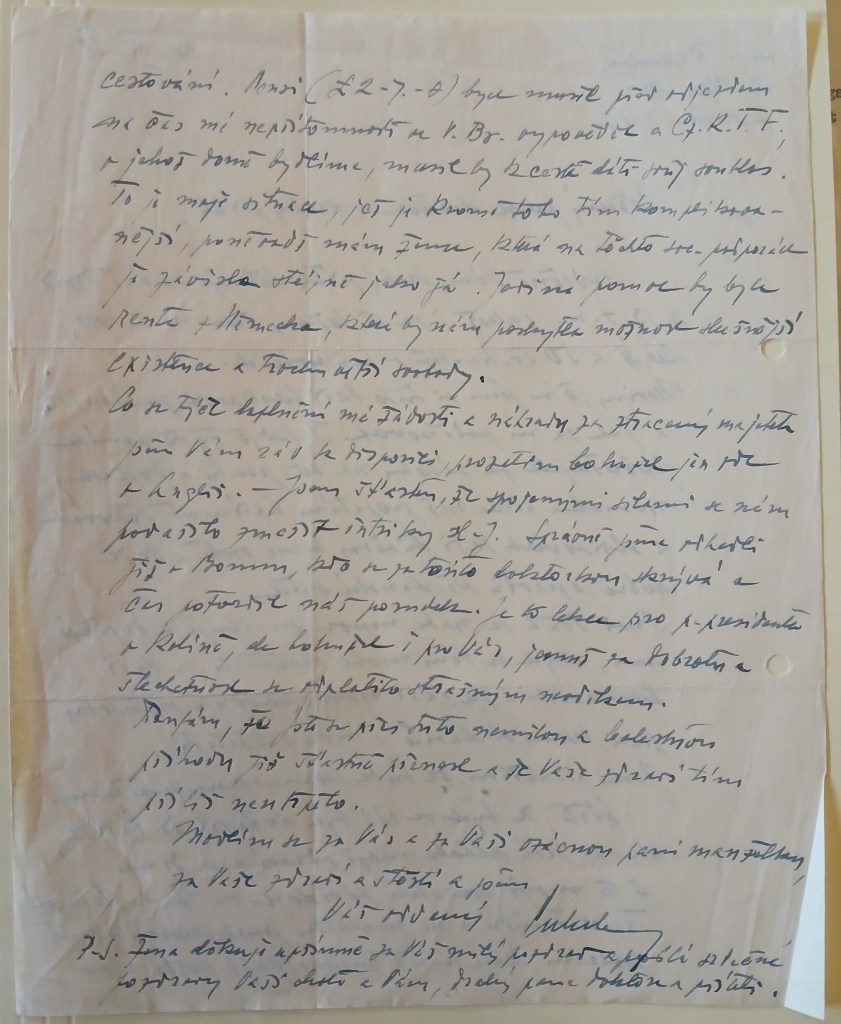 cestování. Pensi (£ 2-7.-0) bych musil před odjezdem
na čas mé nepřítomnosti ve V. Br. vypovědět a Cz. R. T. F.,
v jehož domě bydlíme, musel by k cestě dáti svůj souhlas.
To je moje situace, jež je kromě toho tím komplikova-
nější, poněvadž mám ženu, která na těchto soc. podporách
je závislá stejně jako já. Jediná pomoc by byla
renta z Německa, která by nám poskytla možnost slušnější
existence a trochu větší svobody.
Co se týče doplnění mé žádosti a náhrady za ztracený majetek
jsem Vám zde k disposici, prozatím bohužel jen zde
v Anglii. — Jsem šťasten, že spojenými silami se nám
podařilo zmařit intriky H-J. Správně jsme odhadli
již v Bonnu, kdo se za touto loktorkou skrývá a
čas potvrdil náš posudek. Je to lekce pro p. presidenta
v Kolíně, ale bohužel i pro Vás, jemuž za dobrotu a
šlechetnost se odplatilo strašným nevděkem.
Doufám, že jste se přes tuto nemilou a bolestnou
příhodu již šťastně přenesl a že Vaše zdraví tím
příliš neutrpělo.
Modlím se za Vás a za Vaši vzácnou paní manželku,
za Vaše zdraví a štěstí a jsem
Váš oddaný
P.S. Žena děkuje upřímně za Váš milý pozdrav a posílá srdečné
pozdravy Vaší choti a Vám, drahý pane doktore a příteli.